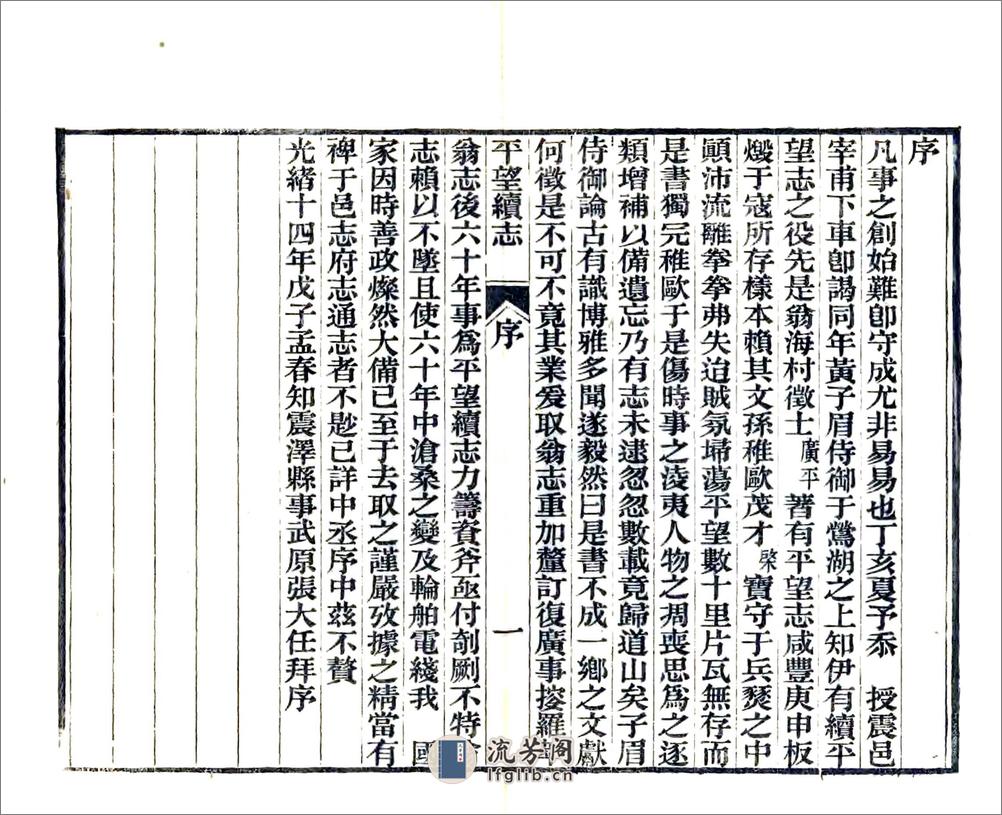 序
凡事之創始難卽守成尤非易易也丁亥夏予忝　授震邑
宰甫下車卽謁同年黃子眉侍御于鶯湖之上知伊有續平
望志之役先是翁海村徵士廣平著有平望志咸豐庚申板
燬于寇所存樣本賴其文孫稚歐茂才棨寶守于兵燹之中
顚沛流離拳拳弗失迨賊氛埽蕩平望數十里片瓦無存而
是書獨完稚歐于是傷時事之淩夷人物之凋喪思爲之逐
類增補以備遺忘乃有志未逮忽忽數載竟歸道山矣子眉
侍御論古有識博雅多聞遂毅然曰是書不成一鄉之文獻
何徵是不可不竟其業爰取翁志重加釐訂復廣事搜羅
平望續志　序　一
翁志後六十年事爲平望續志力籌資斧亟付剞劂不特
志賴以不墜且使六十年中滄桑之變及輪舶電綫我　國
家因時善政燦然大備已至于去取之謹嚴攷據之精當有
裨于邑志府志通志者不尠已詳中丞序中茲不贅
光緒十四年戊子孟春知震澤縣事武原張大任拜序
流芳閣
lfglib.cn